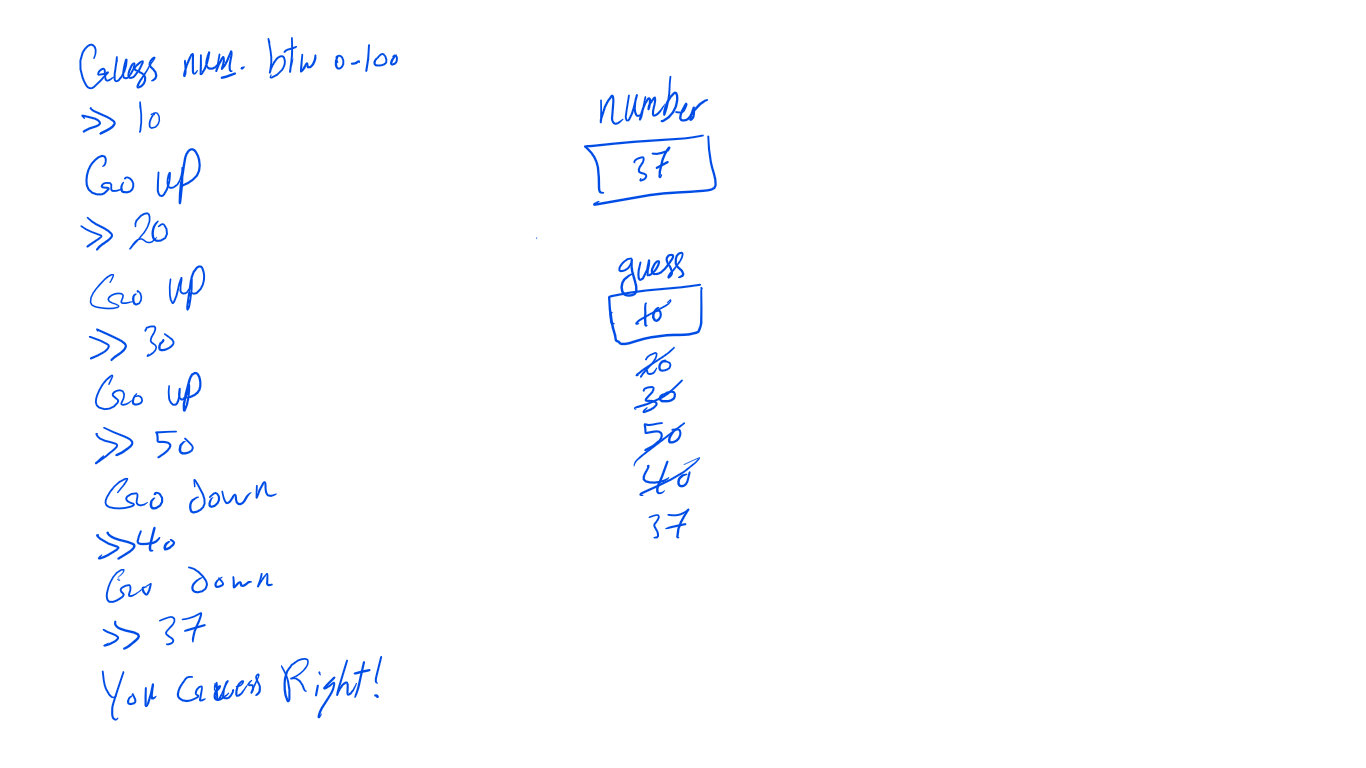 Guess num. btw 0-100
>> 10
Go up
>> 20
Go up
>> 30
Go up
>> 50
Go down
>> 40
Go down
>> 37
You Guess Right!
number
37
guess
10
20
30
50
40
37